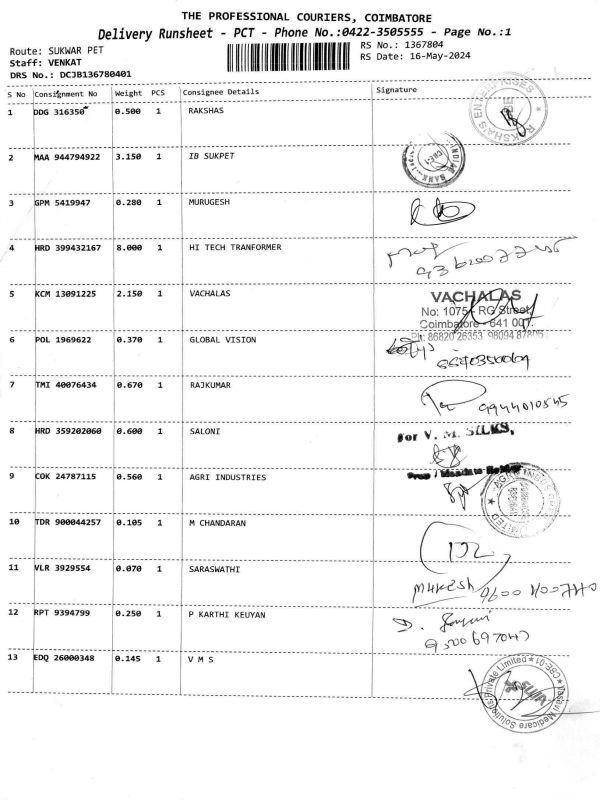 THE PROFESSIONAL COURIERS, COIMBATORE
Delivery Runsheet - PCT - Phone No.:0422-3505555 - Page No.:1
Route: SUKWAR PET RS No.: 1367804
Staff: VENKAT RS Date: 16-May-2024
DRS No.: DCJB136780401
S No Consignment No Weight PCS Consignee Details Signature
1 DDG 316350 0.500 1 RAKSHAS
RAKSHA'S ENTERPRISES
2 MAA 944794922 3.150 1 IB SUKPET
INDIAN BANK
3 GPM 5419947 0.280 1 MURUGESH
4 HRD 399432167 8.000 1 HI TECH TRANFORMER
5 KCM 13091225 2.150 1 VACHALAS
VACHALAS
No: 1075, RG Street,
Coimbatore - 641 001.
Ph: 86820 26353, 98094
6 POL 1969622 0.370 1 GLOBAL VISION
7 TMI 40076434 0.670 1 RAJKUMAR
9944010545
8 HRD 359202060 0.600 1 SALONI
For V. M. SILKS,
9 COK 24787115 0.560 1 AGRI INDUSTRIES
10 TDR 900044257 0.105 1 M CHANDARAN
11 VLR 3929554 0.070 1 SARASWATHI
MUKESH
12 RPT 9394799 0.250 1 P KARTHI KEUYAN
D.
13 EDQ 26000348 0.145 1 V M S
Vasavi Medicare Solutions Private Limited * CBE-01 *